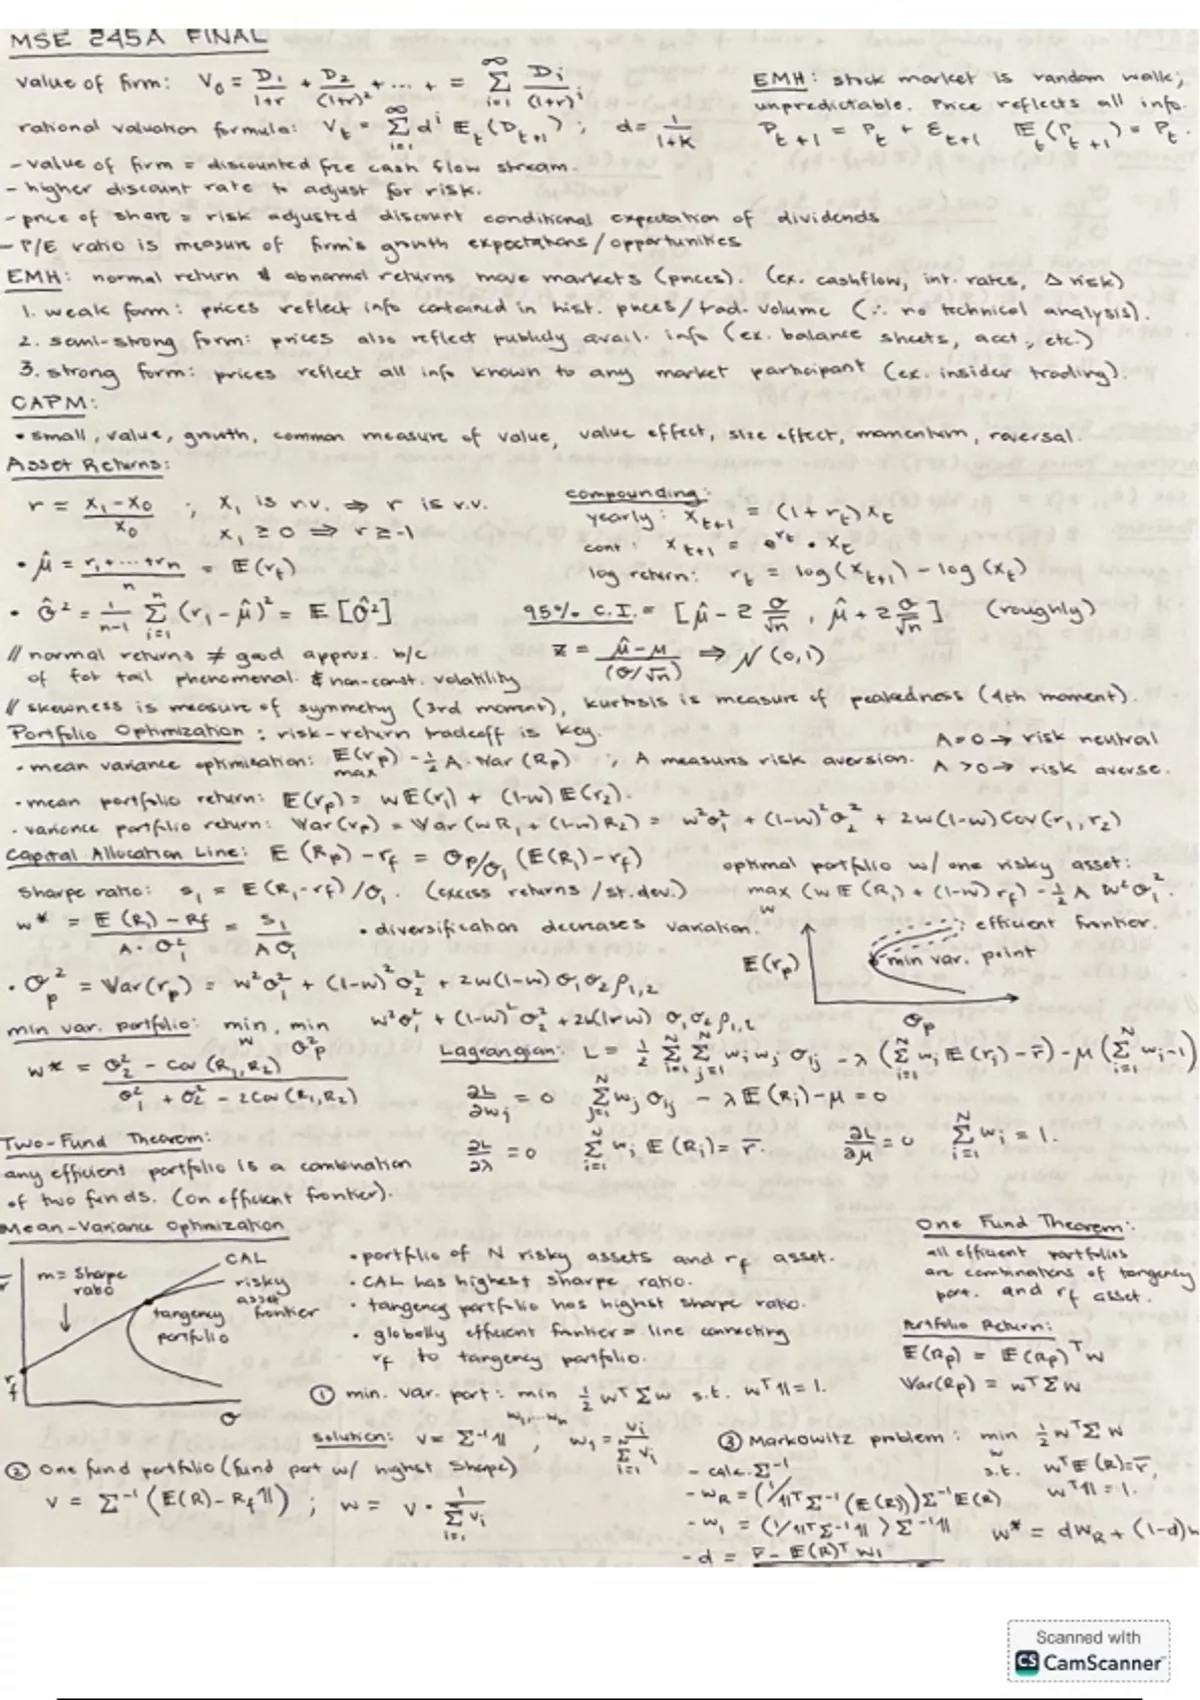 MSE 245A FINAL
Value of firm: V₀ = D₁/(1+r) + D₂/(1+r)² + ... + = ∞Σi=1 Di/(1+r)^i
EMH: stock market is random walk;
unpredictable. Price reflects all info.
rational valuation formula: V_t = ∞Σi=1 d^i E_t(D_t+1); d = 1/(1+k)
P_t+1 = P_t + ε_t+1 E_t(P_t+1) = P_t.
- value of firm = discounted free cash flow stream.
- higher discount rate to adjust for risk.
- price of share = risk adjusted discount conditional expectation of dividends
- P/E ratio is measure of firm's growth expectations/opportunities
EMH: normal return & abnormal returns move markets (prices). (ex. cashflow, int. rates, Δ risk)
1. weak form: prices reflect info contained in hist. prices/trad. volume (∴ no technical analysis).
2. semi-strong form: prices also reflect publicly avail. info (ex. balance sheets, acct, etc.)
3. strong form: prices reflect all info known to any market participant (ex. insider trading).
CAPM:
• small, value, growth, common measure of value, value effect, size effect, momentum, reversal.
Asset Returns:
r = (X₁-X₀)/X₀ ; X₁ is r.v. ⇒ r is r.v.
X₁ ≥ 0 ⇒ r ≥ -1
compounding:
yearly: X_t+1 = (1+r_t) X_t
cont: X_t+1 = e^rt • X_t
log return: r_t = log(X_t+1) - log(X_t)
• μ̂ = (r₁+...+r_n)/n = E(r_t)
• σ̂² = 1/(n-1) nΣi=1 (r_i - μ̂)² = E[σ̂²]
95% C.I. = [μ̂ - 2 σ/√n , μ̂ + 2 σ/√n] (roughly)
// normal returns ≠ good approx. b/c
of fat tail phenomenal. & non-const. volatility
Z = (μ̂-μ)/(σ/√n) ⇒ N(0,1)
// skewness is measure of symmetry (3rd moment), kurtosis is measure of peakedness (4th moment).
Portfolio Optimization: risk-return tradeoff is key.
• mean variance optimization: max E(r_p) - ½ A • Var(R_p) ; A measures risk aversion.
A=0 → risk neutral
A>0 → risk averse.
• mean portfolio return: E(r_p) = wE(r₁) + (1-w)E(r₂).
• variance portfolio return: Var(r_p) = Var(wR₁ + (1-w)R₂) = w²σ₁² + (1-w)²σ₂² + 2w(1-w)Cov(r₁,r₂)
Capital Allocation Line: E(R_p) - r_f = σ_p/σ₁ (E(R₁) - r_f)
Sharpe ratio: s₁ = E(R₁-r_f)/σ₁. (excess returns/st.dev.)
optimal portfolio w/ one risky asset:
max_w (wE(R₁) + (1-w) r_f) - ½ A w²σ₁².
w* = (E(R₁) - R_f)/(A•σ₁²) = s₁/(Aσ₁)
• diversification decreases variation.
E(r_p)
efficient frontier.
min var. point
σ_p
• σ_p² = Var(r_p) = w²σ₁² + (1-w)²σ₂² + 2w(1-w)σ₁σ₂ρ₁,₂
min var. portfolio: min_w, min σ²_p w²σ₁² + (1-w)²σ₂² + 2w(1-w) σ₁σ₂ρ₁,₂
w* = (σ₂² - Cov(R₁,R₂))/(σ₁² + σ₂² - 2Cov(R₁,R₂))
Lagrangian: L = ½ NΣi=1 NΣj=1 w_i w_j σ_ij - λ(NΣi=1 w_i E(r_i) - r̄) - μ(NΣi=1 w_i-1)
∂L/∂w_j = 0 NΣj=1 w_j σ_ij - λE(R_i) - μ = 0
Two-Fund Theorem:
any efficient portfolio is a combination
of two funds. (on efficient frontier).
∂L/∂λ = 0 Σi=1 w_i E(R_i) = r̄.
∂L/∂μ = 0 NΣi=1 w_i = 1.
Mean-Variance Optimization
r̄
m = Sharpe
ratio
CAL
risky
asset
frontier
tangency
portfolio
r_f
σ
• portfolio of N risky assets and r_f asset.
• CAL has highest sharpe ratio.
• tangency portfolio has highest sharpe ratio.
• globally efficient frontier = line connecting
r_f to tangency portfolio.
One Fund Theorem:
all efficient portfolios
are combinations of tangency
port. and r_f asset.
Portfolio Return:
E(R_p) = E(R_p)ᵀw
Var(R_p) = wᵀΣw
① min. var. port: min w₁,...w_n ½ wᵀΣw s.t. wᵀ𝟙 = 1.
solution: v = Σ⁻¹𝟙 , w₁ = v_i/nΣi=1 v_i
② One fund portfolio (fund port w/ highest Sharpe)
v = Σ⁻¹(E(R) - R_f𝟙) ; w = v • 1/Σi=1 v_i
③ Markowitz problem: min_w ½ wᵀΣw
s.t. wᵀE(R) = r̄,
wᵀ𝟙 = 1.
- calc. Σ⁻¹
- w_R = (1/𝟙ᵀΣ⁻¹(E(R)))Σ⁻¹E(R)
- w₁ = (1/𝟙ᵀΣ⁻¹𝟙)Σ⁻¹𝟙
w* = dw_R + (1-d)w
- d = r̄ - E(R)ᵀw₁
Scanned with
CS CamScanner